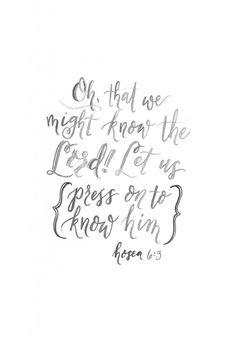 Oh, that we
might know the
Lord! Let us
{press on to
know him}
hosea 6:3